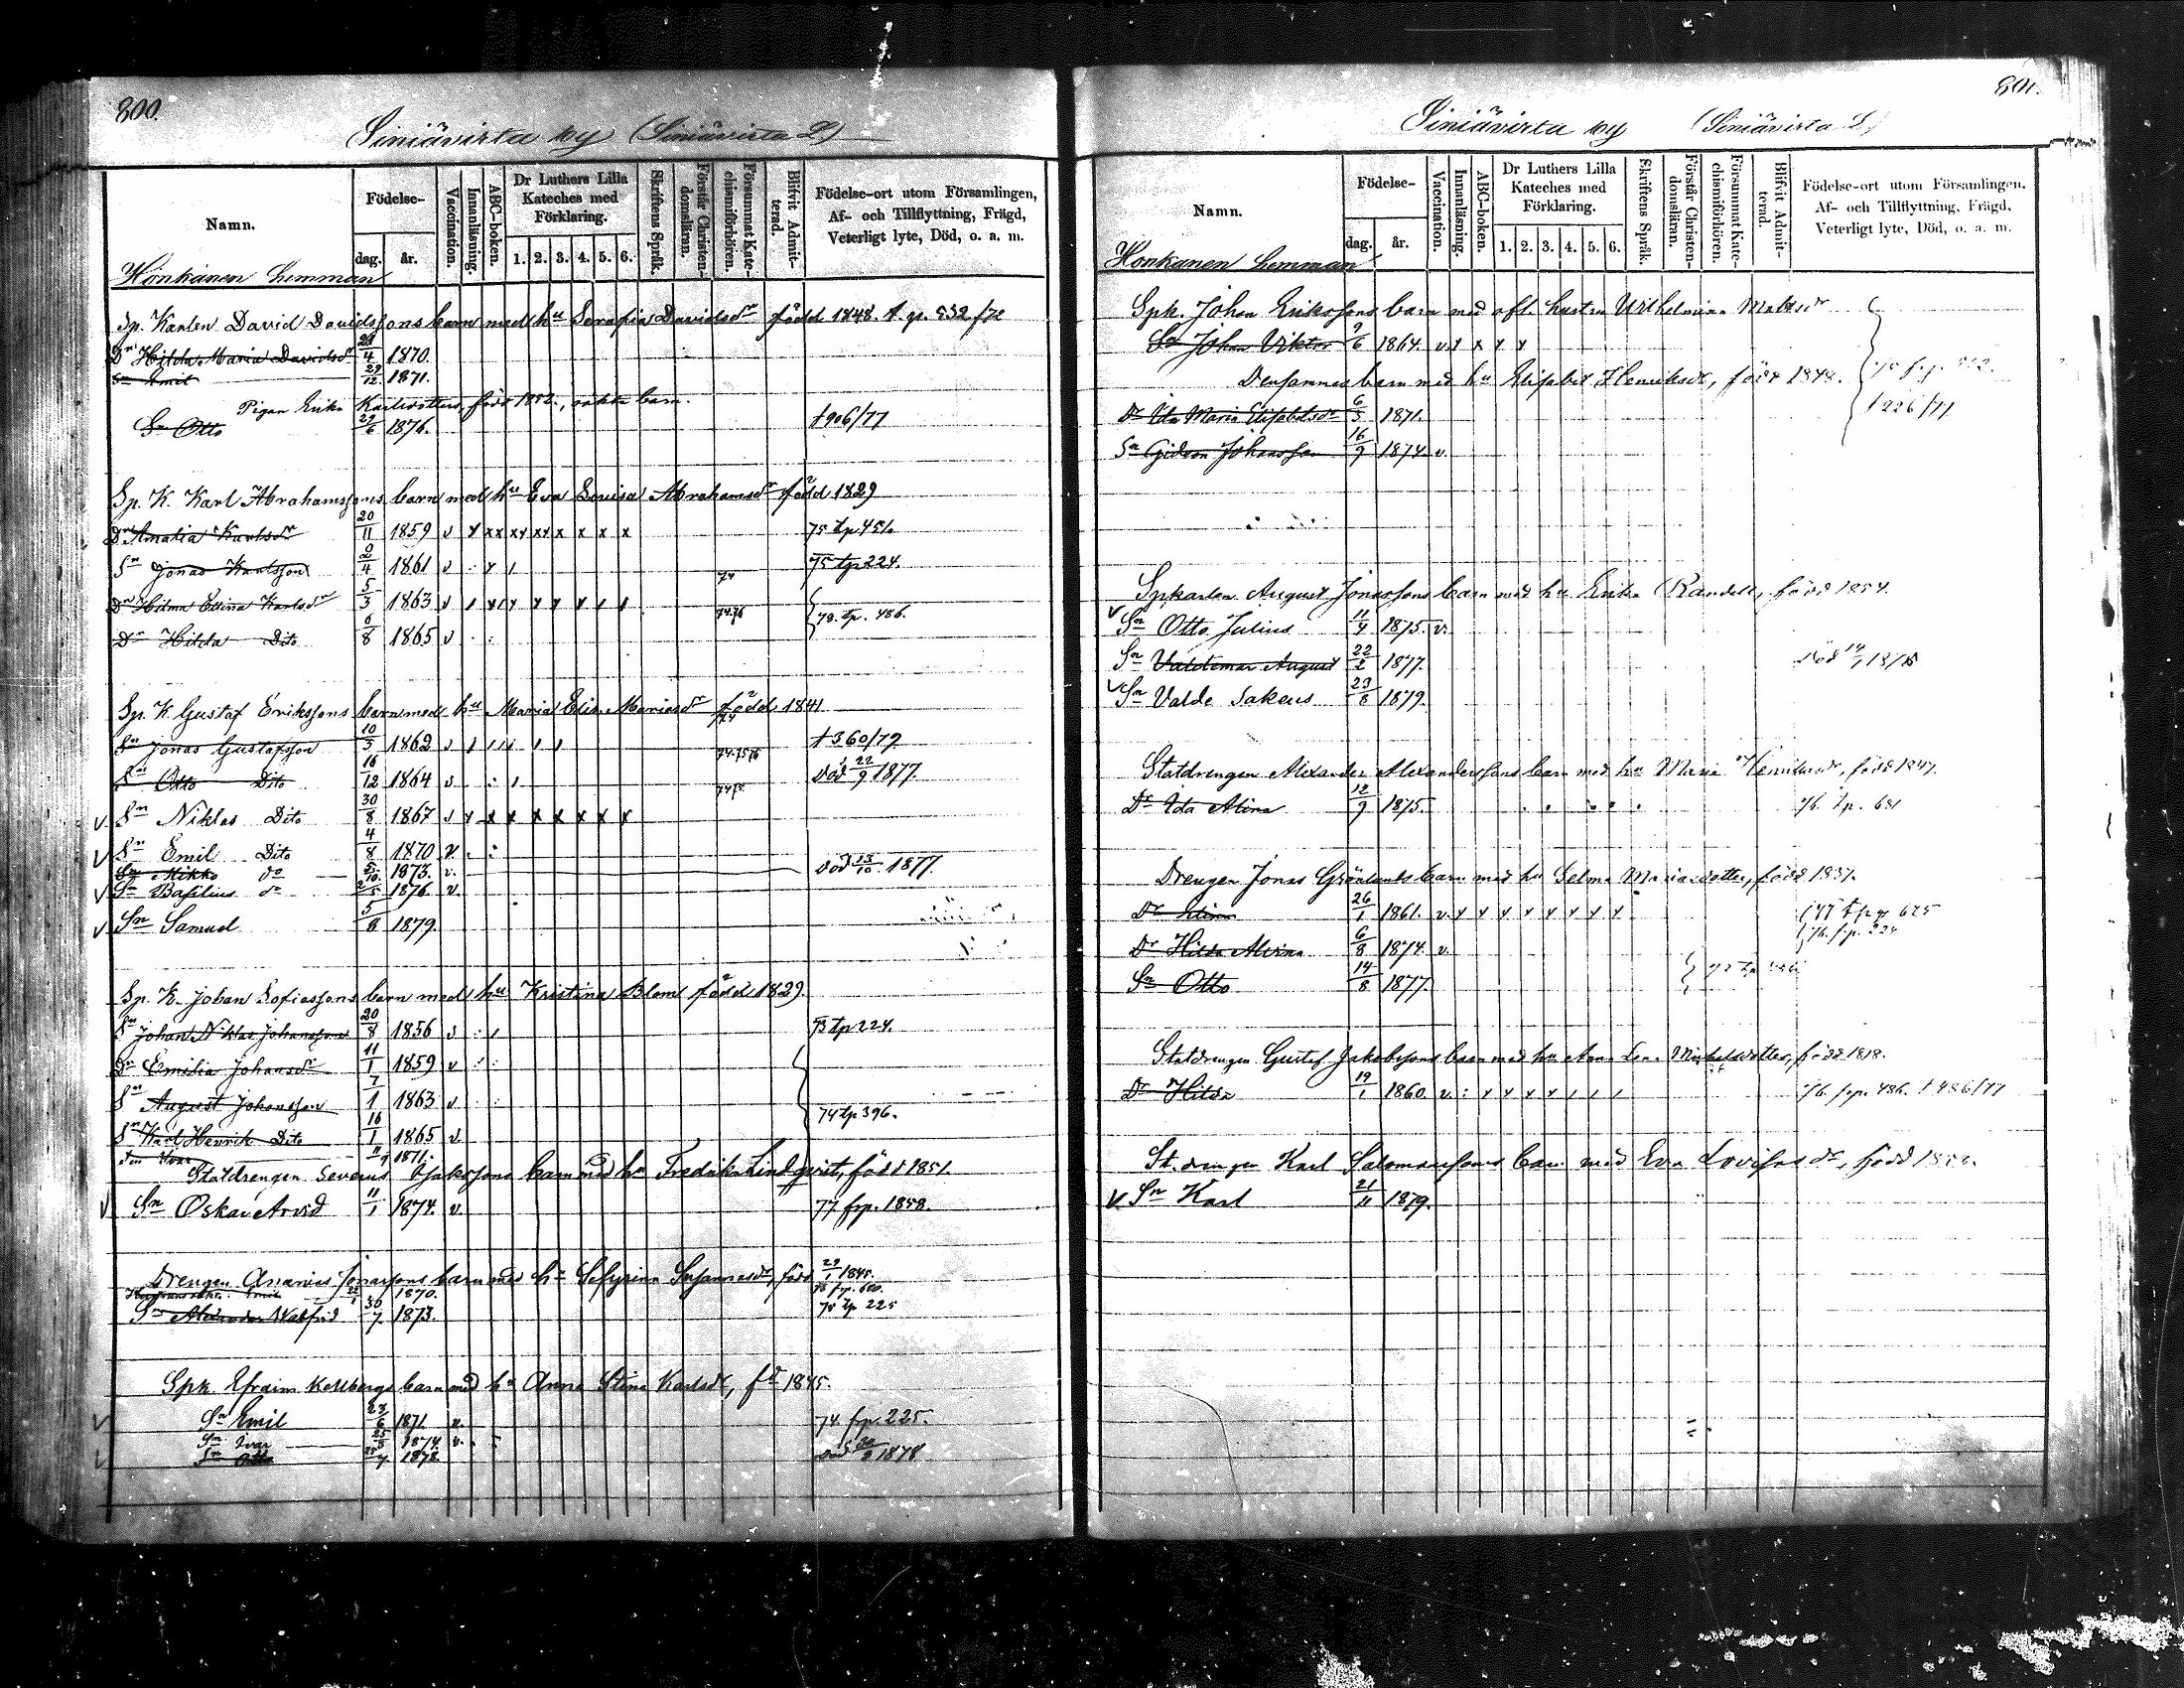 800.
Siniävirta by (Siniävirta L.)
Namn.
Födelse-
dag.
år.
Vaccination.
Innanläsning.
ABC-boken.
Dr Luthers Lilla Kateches med Förklaring.
1. 2. 3. 4. 5. 6.
Skriftens Språk.
Förstår Christendomsläran.
Försummat Katechismiförhören.
Blifvit Admitterad.
Födelse-ort utom Församlingen,
Af- och Tillflyttning, Frägd,
Veterligt lyte, Död, o. a. m.
Honkanen hemman
Sp. Karlen David Davidssons barn med hu Serafia Davidsdr född 1848 t. p. 532/72
Dr Hilda Maria Davidsdr 21/4 1870.
Sn Emil 29/12 1871.
Pigan Erika Karlsdotters, född 1852, oäkta barn.
Sn Otto 29/6 1876. t 906/77
Sp. K. Karl Abrahamssons barn med hu Eva Lovisa Abrahamsdr född 1829
Dr Amalia Karlsdr 20/11 1859 v x xx xx xx x x x x 75 tp 451.
Sn Jonas Karlsson 2/4 1861 v 75 tp 224.
Dr Hilma Elina Karlsdr 5/3 1863 v 74
Dr Hilda Dito 6/8 1865 v 74.76 78. tp. 486.
Sp. K. Gustaf Erikssons barn med hu Maria Elis. Mariasdr född 1841
Sn Jonas Gustafsson 10/5 1862 v 74.75.76 t 360/79
Sn Otto Dito 16/12 1864 v död 22/9 1877.
v Sn Niklas Dito 30/8 1867 v x x x x x x x x
v Sn Emil Dito 4/8 1870 v.
Sn Mikko do 5/10 1873. v. död 13/10 1877.
v Sn Basilius do 2/5 1876 v.
v Sn Samuel 5/8 1879.
Sp. K. Johan Sofiassons barn med hu Kristina Blom född 1829.
Sn Johan Niklas Johansson 20/8 1856 v 73 tp 224.
Dr Emilia Johansdr 11/1 1859 v
Sn August Johansson 7/1 1863 v
Sn Karl Henrik Dito 16/1 1865 v. 74 tp 396.
1871.
Statdrengen Severus Isakssons barn med hu Fredrika Lindqvist, född 1851
v Sn Oskar Arvid 11/1 1874. v. 77 frp. 1858.
Drengen Ananias Jonassons barn med hu Sefyrina Susannasdr, född 29/1 1845.
1870.
Sn Alexander Walfrid 30/7 1873. 78 tp 225
Spk. Efraim Kollbergs barn med hu Anna Stina Karlsdr, fd 1845.
v Sn Emil 28/6 1871 v. 74. frp. 225.
Sn Ivar 25/5 1874. v.
Sn Otto 25/7 1878. död 1878
801.
Siniävirta by (Siniävirta L.)
Namn.
Födelse-
dag.
år.
Vaccination.
Innanläsning.
ABC-boken.
Dr Luthers Lilla Kateches med Förklaring.
1. 2. 3. 4. 5. 6.
Skriftens Språk.
Förstår Christendomsläran.
Försummat Katechismiförhören.
Blifvit Admitterad.
Födelse-ort utom Församlingen.
Af- och Tillflyttning, Frägd.
Veterligt lyte, Död, o. a. m.
Honkanen hemman
Spk. Johan Erikssons barn med afl. hustru Wilhelmina Mattsdr
Sn Johan Viktor 9/6 1864. v x x x x
Densammes barn med hu Elisabet Henriksdr, född 1848.
Dr Ida Maria Elisabetsdr 6/5 1871.
t 226/77
Sn Gideon Johansson 16/9 1874 v.
Spkarlen August Jonassons barn med hu Erika Randell, född 1854.
v Sn Otto Julius 11/4 1875. v.
Sn Valdemar August 22/2 1877. död 1878
v Sn Valde Sakeus 23/8 1879.
Statdrengen Alexander Alexanderssons barn med hu Maria Henriksdr, född 1847.
Dr Ida Alina 12/9 1875. 76. tp. 681
Drengen Jonas Grönlunds barn med hu Selma Mariasdotter, född 1837.
Dr Elina 26/1 1861. v. x x x x x x x x 77 tp 625
Dr Hilda Alvina 6/8 1874. v. 76. frp. 224
Sn Otto 14/8 1877
Statdrengen Gustaf Jakobssons barn med hu Anna Lena Mickelsdotter, född 1818.
Dr Hilda 19/1 1860. v. 76. frp. 486. t 486/77
St. drengen Karl Salomonssons barn med Eva Lovisasdr, född
v Sn Karl 21/11 1879.